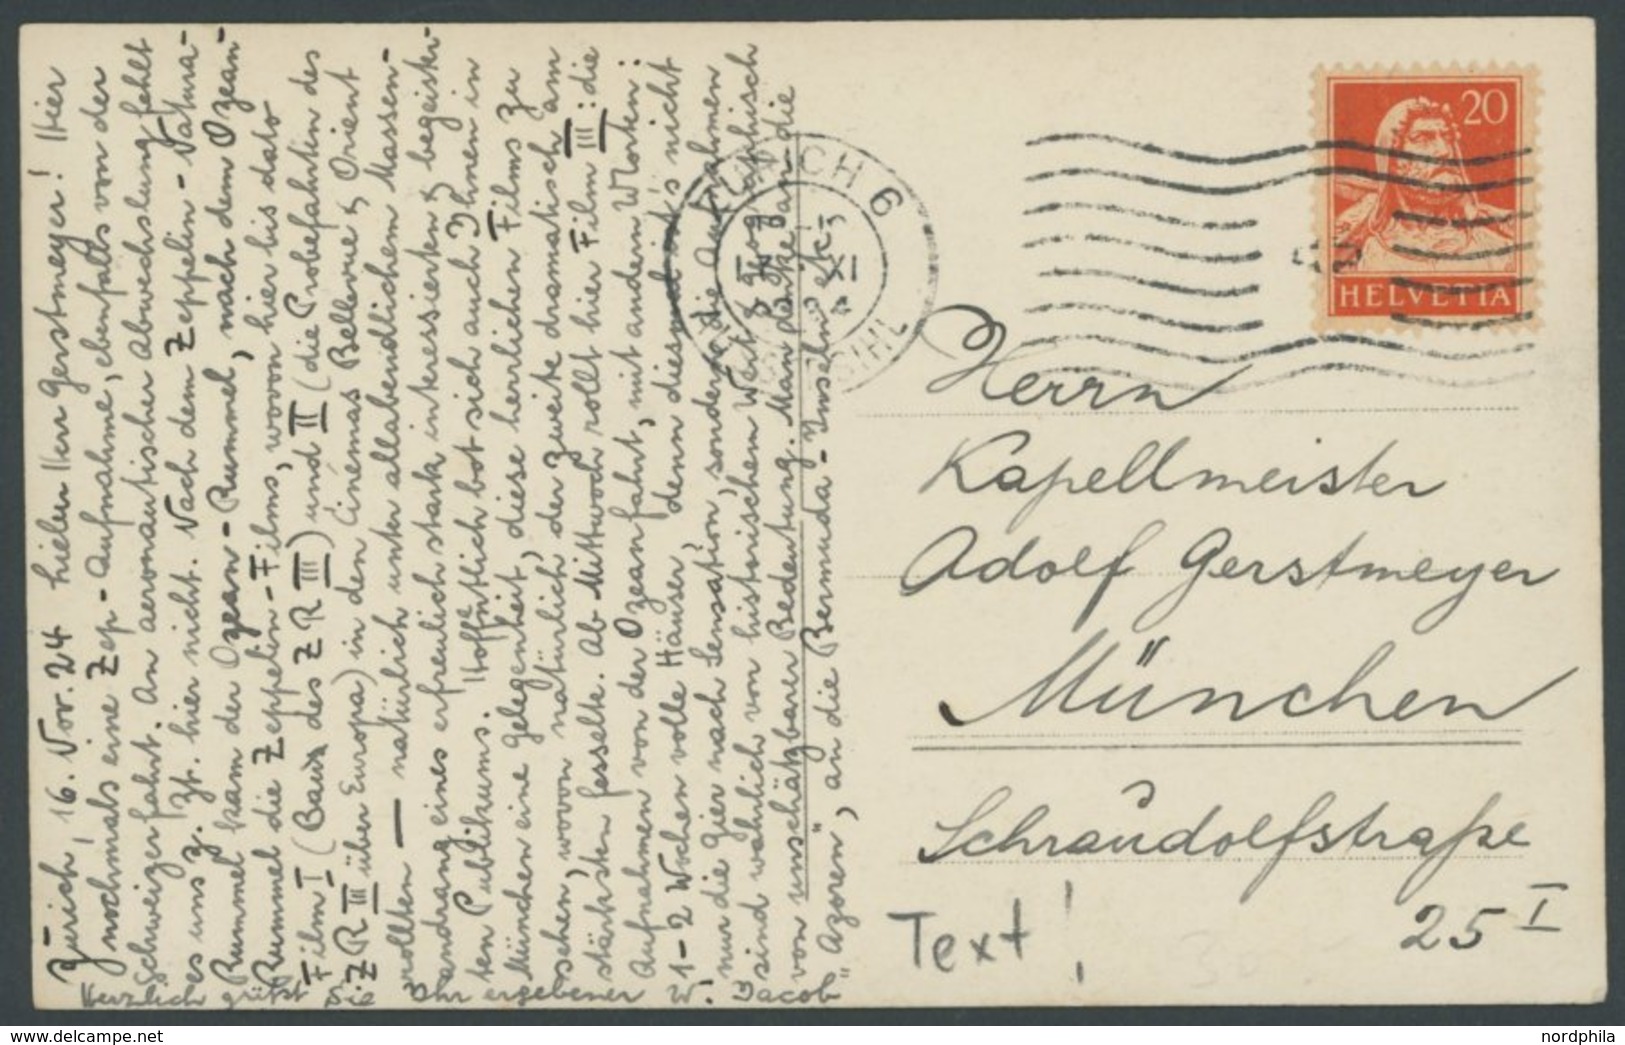 Zürich, 16. Nov. 24 Lieber Herr Gerstmeyer! Hier
nochmals eine Zep-Aufnahme, ebenfalls von der
Schweizerfahrt. An aeronautischer Abwechslung fehlt
es uns z. Zt. hier nicht. Nach dem Zeppelin-Natura-
Rummel kam der Ozean-Rummel, nach dem Ozean-
Rummel die Zeppelin-Films, wovon hier bis dato
Film I (Bau des ZR III) und II (die Probefahrten des
ZR III über Europa) in den Cinémas Bellevue & Orient
rollten — natürlich unter allabendlichem Massen-
andrang eines erfreulich stark interessierten & begeister-
ten Publikums. Hoffentlich bot sich auch Ihnen in
München eine Gelegenheit, diese herrlichen Films zu
sehen, wovon natürlich der zweite dramatisch am
stärksten fesselte. Ab Mittwoch rollt hier Film III: die
Aufnahmen von der Ozeanfahrt, mit andern Worten:
1-2 Wochen volle Häuser, denn diesmal ist's nicht
nur die Gier nach Sensation, sondern die Aufnahmen
sind wahrlich von historischem Wert & geographisch
von unschätzbarer Bedeutung. Man denke an die
"Azoren", an die Bermuda-Inseln etc.
Herzlich grüßt Sie Ihr ergebener W. Jacob
ZÜRICH 6
XI
SIHL
20
HELVETIA
Herrn
Kapellmeister
Adolf Gerstmeyer
München
Schraudolfstraße
25 I
Text!
nordphila
www.delcampe.net